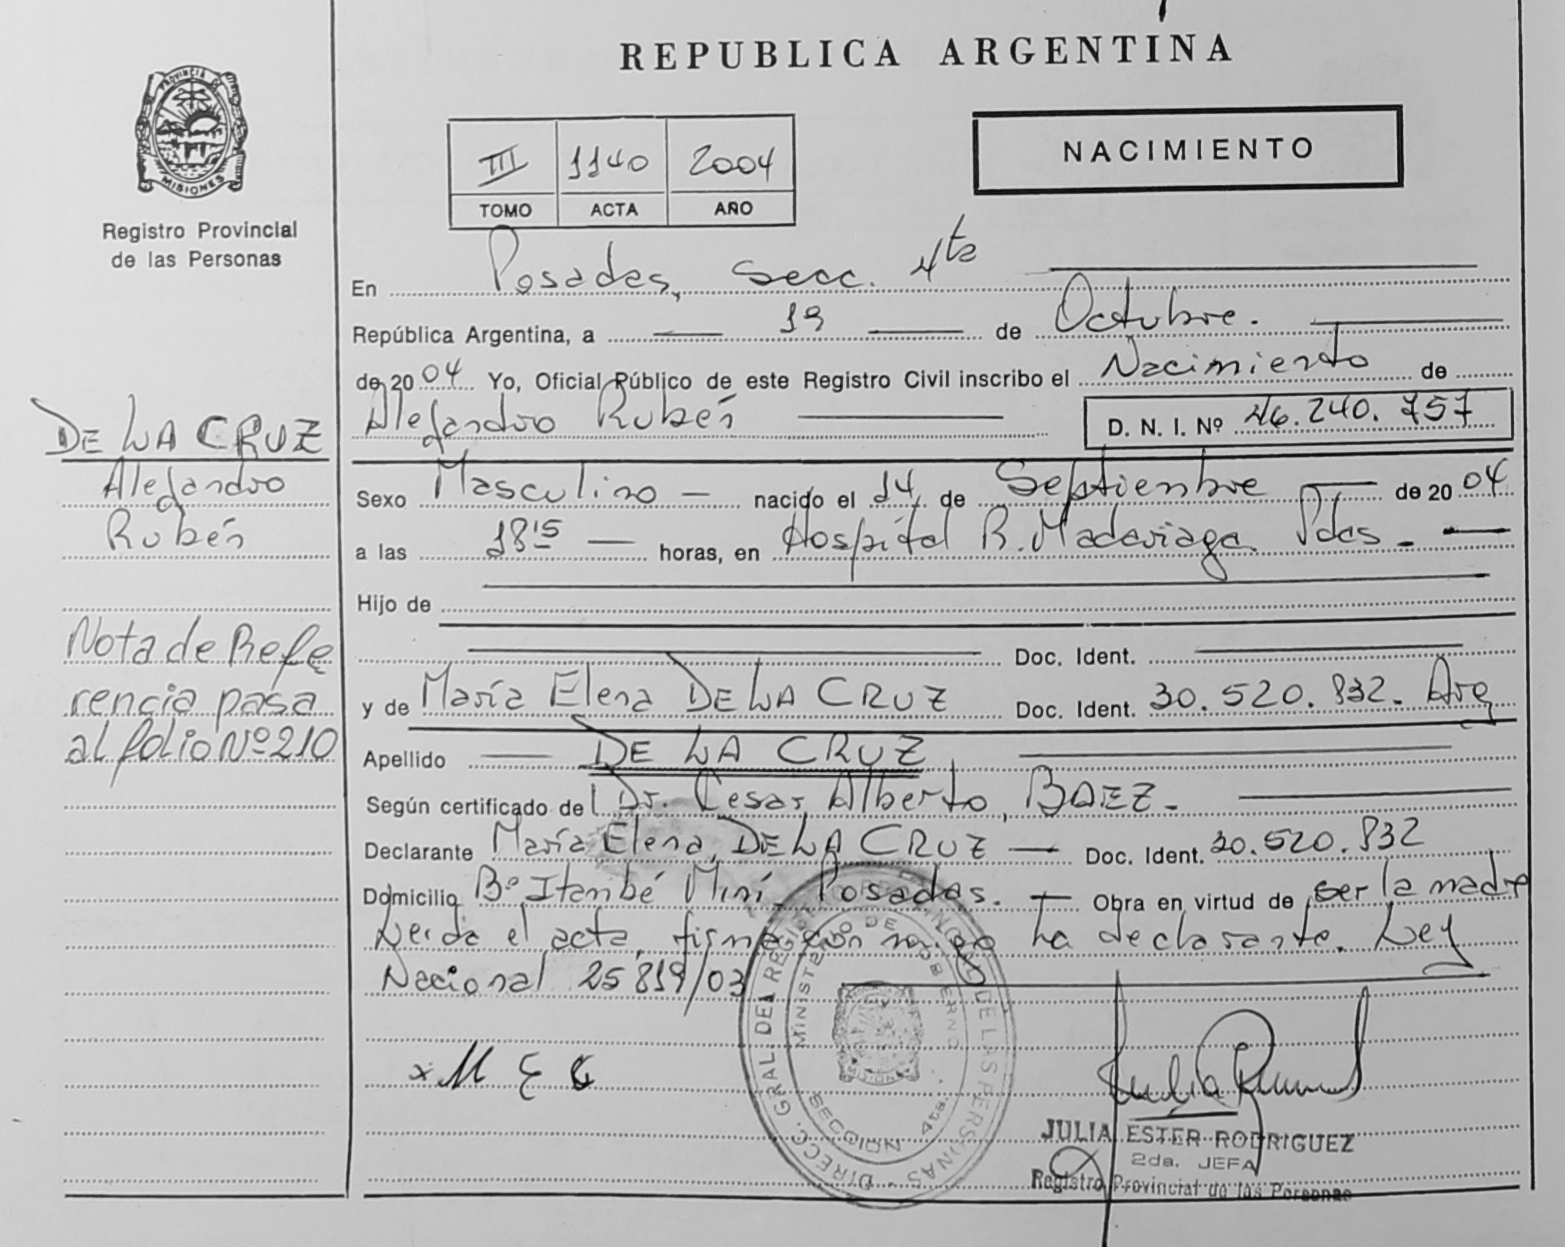 REPUBLICA ARGENTINA
PROVINCIA DE
MISIONES
Registro Provincial
de las Personas
III 1140 2004
TOMO ACTA AÑO
NACIMIENTO
En Posadas, Secc. 4ta
República Argentina, a 19 de Octubre.
de 2004 Yo, Oficial Público de este Registro Civil inscribo el Nacimiento de
Alejandro Rubén D. N. I. Nº 46.240.757
DE LA CRUZ
Alejandro
Rubén
Sexo Masculino — nacido el 14 de Septiembre — de 2004
a las 18 15 — horas, en Hospital R. Madariaga Pdas. —
Hijo de
Doc. Ident.
y de María Elena DE LA CRUZ Doc. Ident. 30.520.832. Arg
Nota de Refe
rencia pasa
al folio Nº 210
Apellido — DE LA CRUZ
Según certificado del Dr. Cesar Alberto BAEZ.
Declarante María Elena DE LA CRUZ — Doc. Ident. 30.520.832
Domicilio Bº Itambé Miní Posadas. — Obra en virtud de ser la madre
Leída el acta, firma con migo la declarante. Ley
Nacional 25819/03
x M E C
DIRECC. GRAL. DEL REGISTRO DE LAS PERSONAS
MINISTERIO DE GOBIERNO
SECCION 4ta.
JULIA ESTER RODRIGUEZ
2da. JEFA
Registro Provincial de las Personas